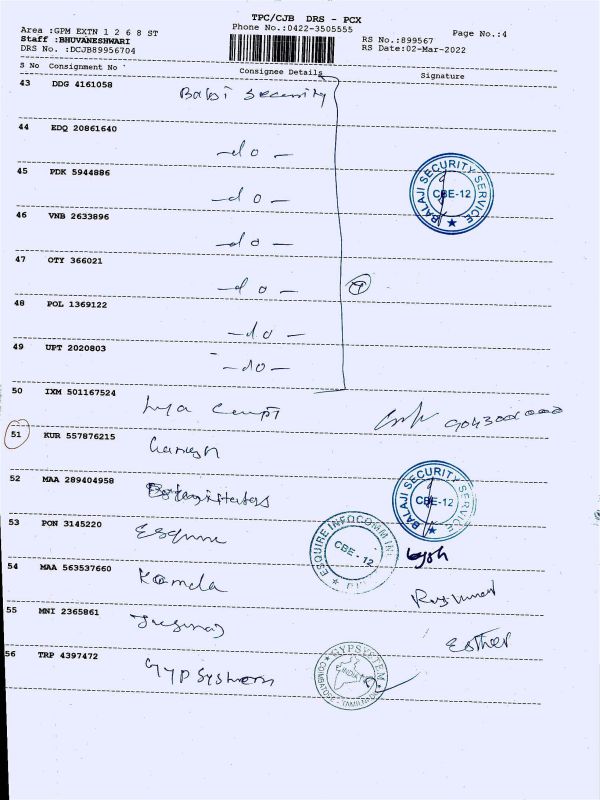 TPC/CJB DRS - PCX
Area :GPM EXTN 1 2 6 8 ST
Phone No.:0422-3505555
Page No.:4
Staff :BHUVANESHWARI
RS No.:899567
DRS No. :DCJB89956704
RS Date:02-Mar-2022
S No Consignment No Consignee Details Signature
43 DDG 4161058
Balaji Security
44 EDQ 20861640
-do-
45 PDK 5944886
-do-
BALAJI SECURITY SERVICE
CBE-12
46 VNB 2633896
-do-
47 OTY 366021
-do-
7
48 POL 1369122
-do-
49 UPT 2020803
-do-
50 IXM 501167524
51 KUR 557876215
Ganesh
52 MAA 289404958
BALAJI SECURITY SERVICE
CBE-12
53 PON 3145220
Esquire
ESQUIRE INFOCOMM
CBE - 12
54 MAA 563537660
Kamala
55 MNI 2365861
Esther
56 TRP 4397472
Gyp Systems
GYPSYSTEM
INDIA
COIMBATORE - TAMILNADU